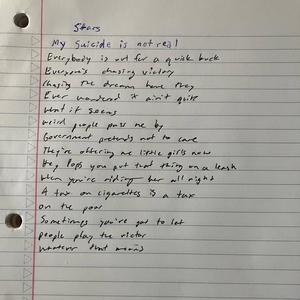 Stars
My Suicide is not real
Everybody is out for a quick buck
Everyone's chasing victory
Chasing the dreams have they
Ever wondered it ain't quite
what it seems
weird people pass me by
Government pretends not to care
They're offering me little girls now
Hey, Pops you put that thing on a leash
when you're riding her all night
A tax on cigarettes is a tax
on the poor
Sometimes you've got to let
people play the victor
whatever that means